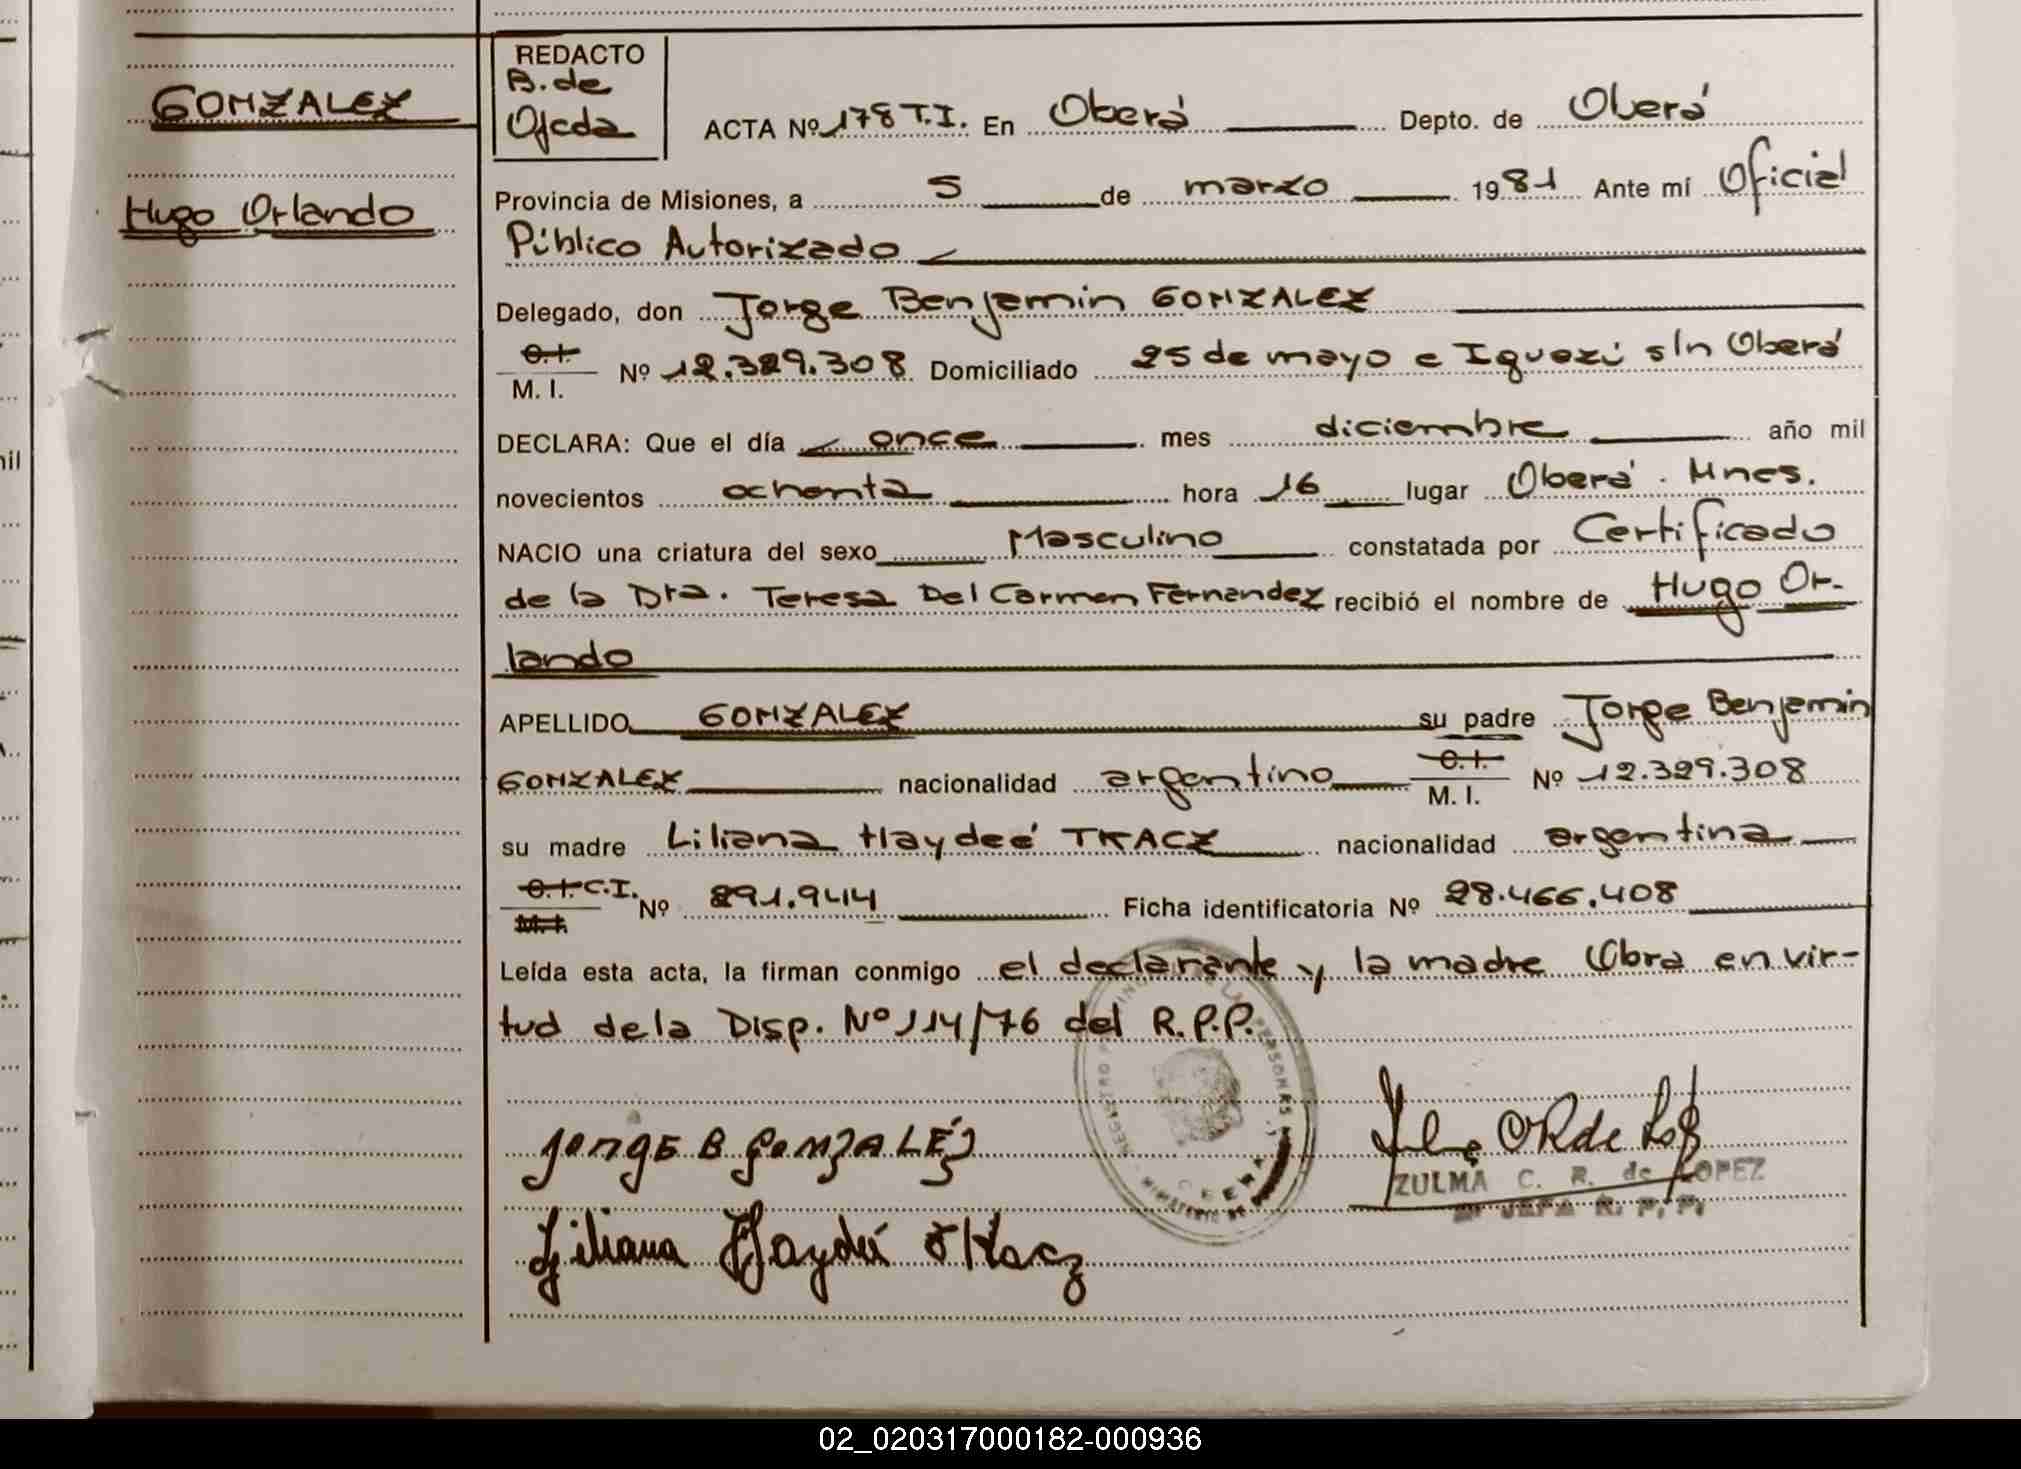 REDACTO
B. de
Ojeda
GONZALEZ
Hugo Orlando
ACTA Nº 178 T.I. En Oberá Depto. de Oberá
Provincia de Misiones, a 5 de marzo 1981 Ante mí Oficial
Público Autorizado
Delegado, don Jorge Benjamin GONZALEZ
C.I.
M. I. Nº 12.329.308 Domiciliado 25 de mayo e Iguazú s/n Oberá
DECLARA: Que el día once mes diciembre año mil
novecientos ochenta hora 16 lugar Oberá. Mnes.
NACIO una criatura del sexo Masculino constatada por Certificado
de la Dra. Teresa Del Carmen Fernandez recibió el nombre de Hugo Or-
lando
APELLIDO GONZALEZ su padre Jorge Benjamin
GONZALEZ nacionalidad argentino M. I. Nº 12.329.308
su madre Liliana Haydeé TKACZ nacionalidad argentina
C.I. Nº 891.944 Ficha identificatoria Nº 28.466.408
M.I.
Leída esta acta, la firman conmigo el declarante y la madre Obra en vir-
tud de la Disp. Nº 114/76 del R.P.P.
JORGE B GONZALÉZ
ZULMA C. R. de LOPEZ
JEFA R. P. P.
Liliana Haydeé Tkacz
mil
02_020317000182-000936